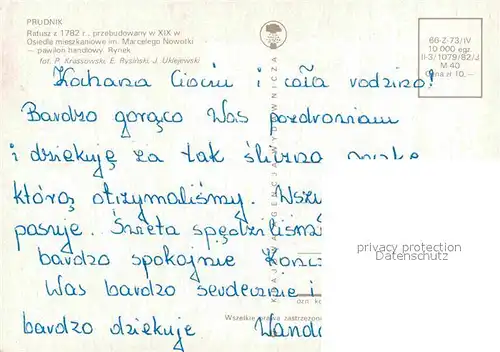 PRUDNIK
Ratusz z 1782 r., przebudowany w XIX w
Osiedle mieszkaniowe im. Marcelego Nowotki
— pawilon handlowy. Rynek
fot. P. Krassowski, E. Rysiński, J. Uklejewski
66-Z-73/IV
10 000 egz.
II-3/1079/82/J
M 40
Cena zł 10,—
KRAJOWA AGENCJA WYDAWNICZA
Kochana Ciociu i cała rodzino!
Bardzo gorąco Was pozdrawiam
i dziękuję za tak śliczną
którą otrzymaliśmy. Wsz
pasuje. Święta spędziliśm
bardzo spokojnie Kończ
Was bardzo serdecznie i
bardzo dziękuje Wanda
Wszelkie prawa zastrzeżon
privacy protection
Datenschutz